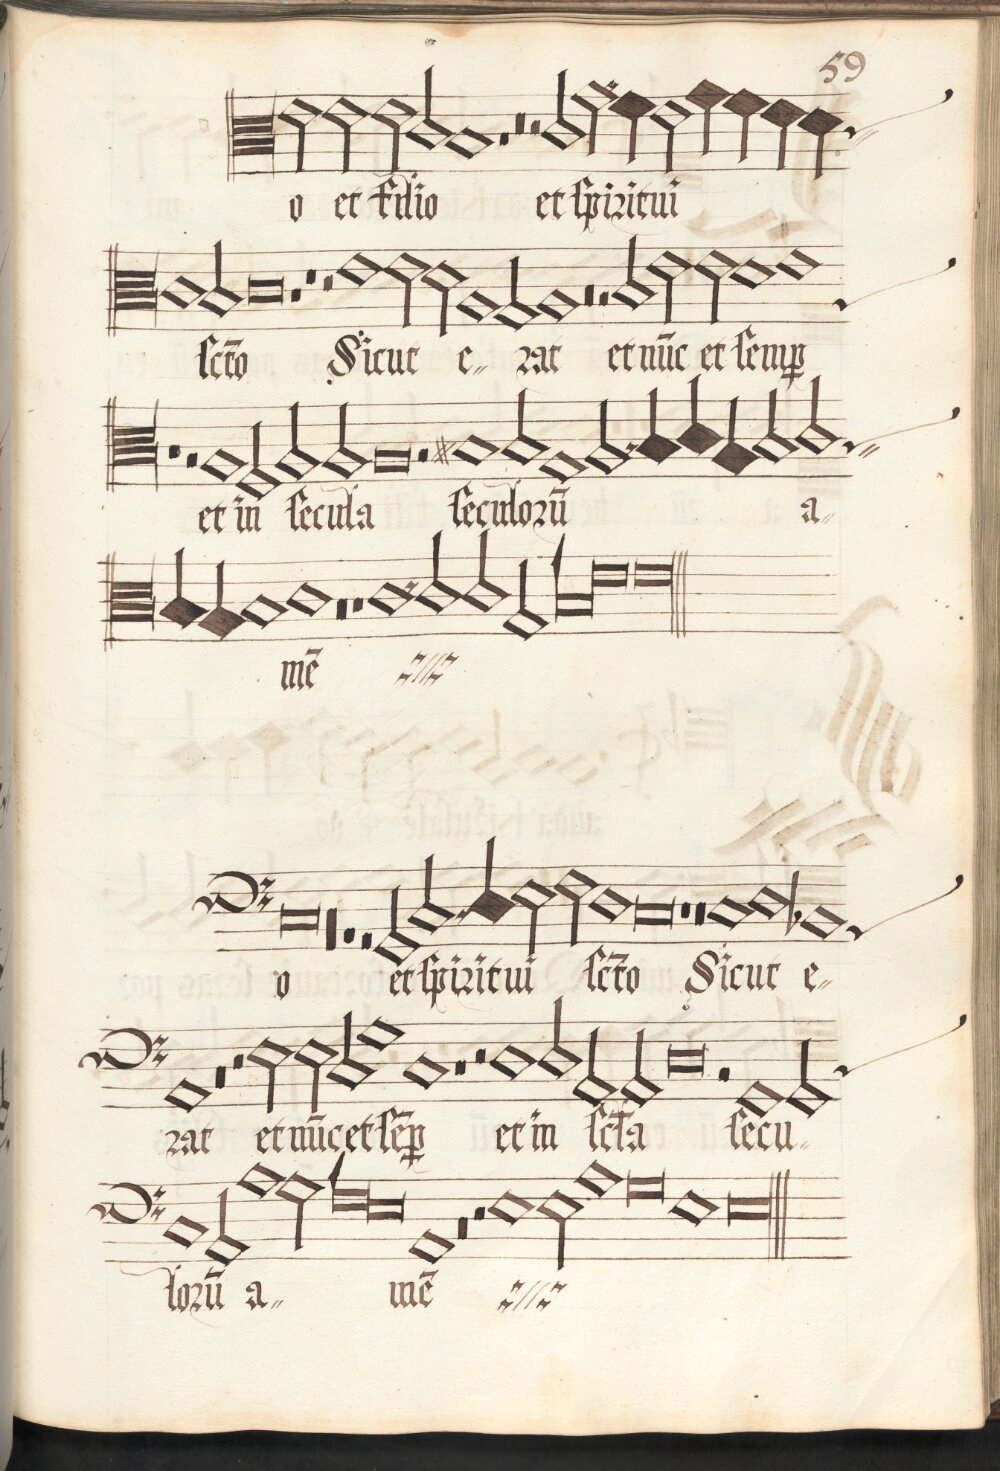 59
o et Filio et spiritui
sc̄to Sicut e„ rat et nūc et semp
et in secula seculorū a„
mē
o et spiritui sc̄to Sicut e„
rat et nūc et sēp et in sc̄la secu„
lorū a„ mē